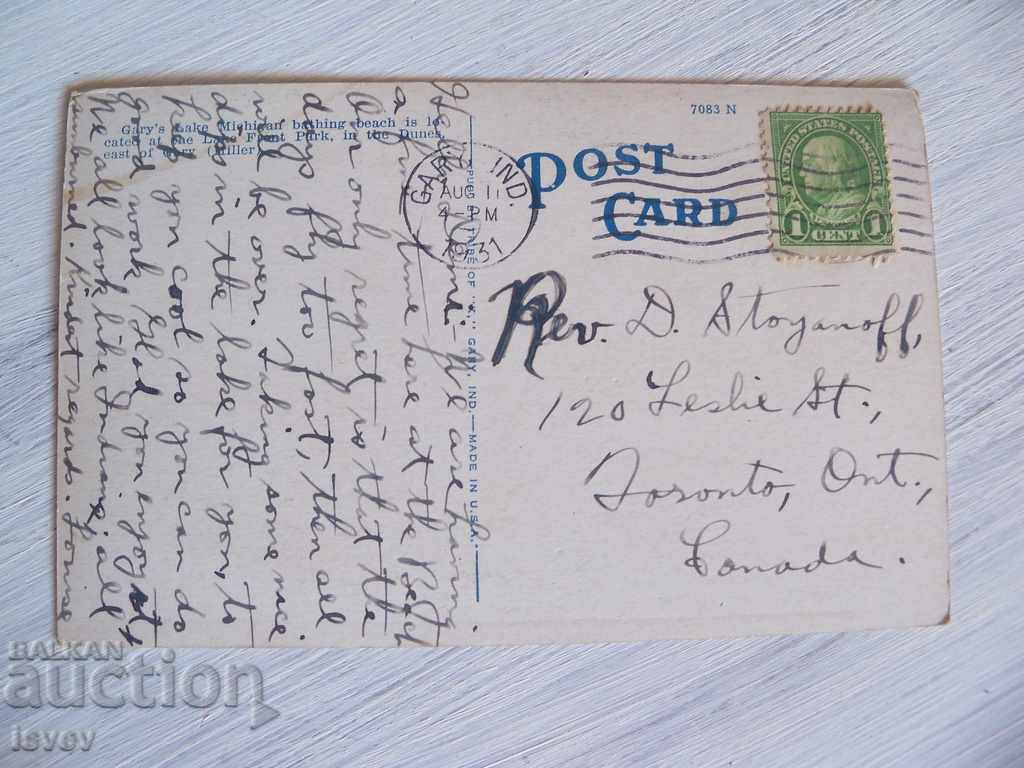 7083 N
Gary's Lake Michigan bathing beach is lo-
cated at the Lake Front Park, in the Dunes,
east of Gary Miller
POST
CARD
GARY IND.
AUG 11
4 - PM
1931
UNITED STATES POSTAGE
1 CENT 1
PUB. GARY, IND. — MADE IN U.S.A.
We are having
a fine time here at the Beach
Our only regret is that the
days fly too fast, then all
will be over. Taking some nice
dips in the lake for you, to
keep you cool so you can do
good work. Glad you enjoy it
We all look like Indians, all
sunburned. Kindest regards.
Rev. D. Stoyanoff,
120 Leslie St.,
Toronto, Ont.,
Canada.
BALKAN
auction
isvev